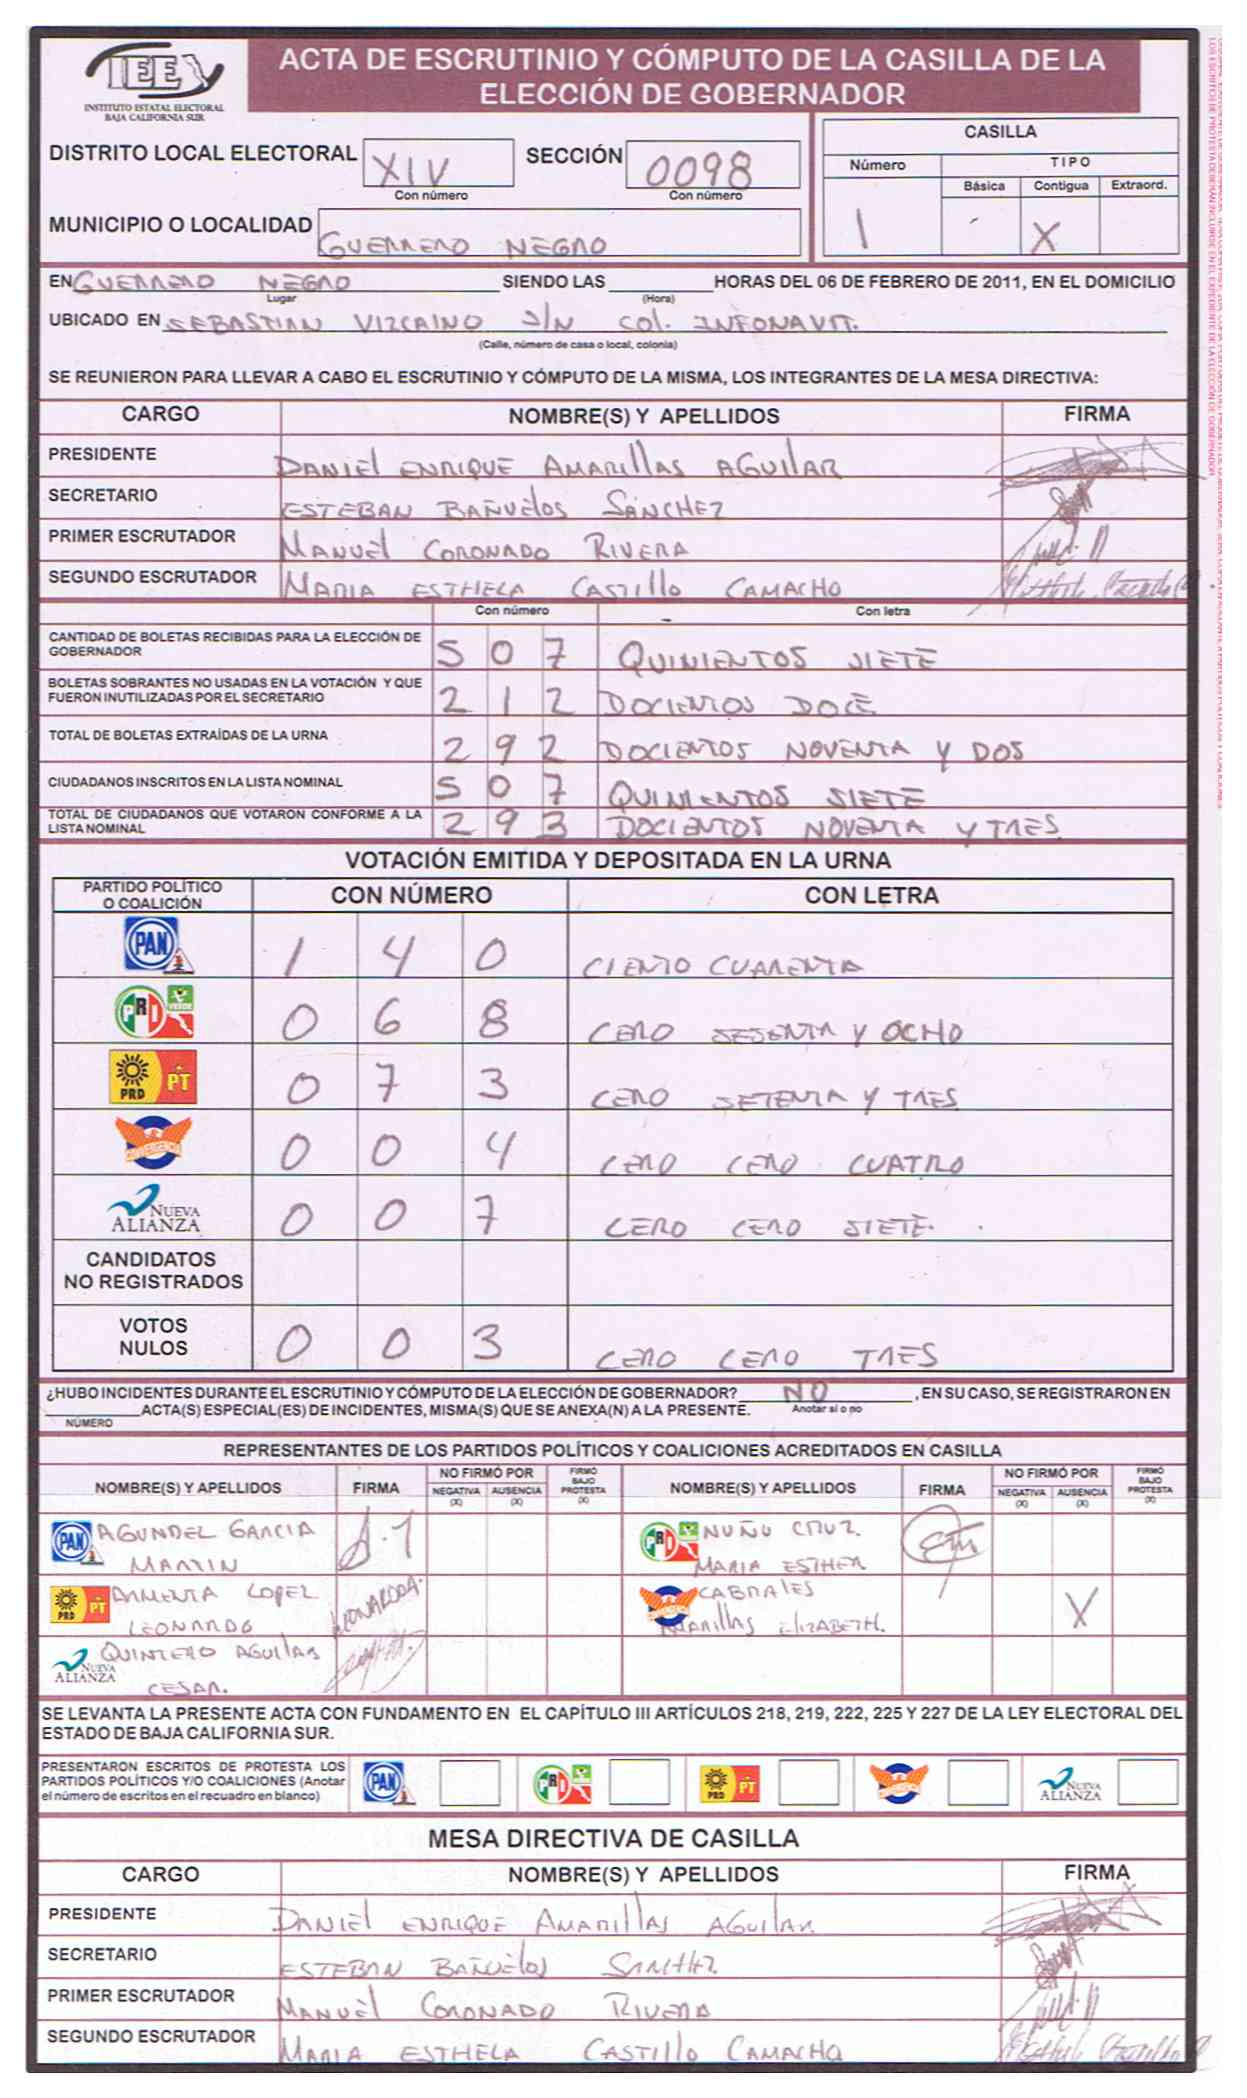 ACTA DE ESCRUTINIO Y CÓMPUTO DE LA CASILLA DE LA
ELECCIÓN DE GOBERNADOR
IEE
INSTITUTO ESTATAL ELECTORAL
BAJA CALIFORNIA SUR
DISTRITO LOCAL ELECTORAL XIV SECCIÓN 0098
Con número Con número
MUNICIPIO O LOCALIDAD GUERRERO NEGRO
CASILLA
Número TIPO
Básica Contigua Extraord.
1 X
EN GUERRERO NEGRO SIENDO LAS HORAS DEL 06 DE FEBRERO DE 2011, EN EL DOMICILIO
Lugar (Hora)
UBICADO EN SEBASTIAN VIZCAINO S/N COL. INFONAVIT.
(Calle, número de casa o local, colonia)
SE REUNIERON PARA LLEVAR A CABO EL ESCRUTINIO Y CÓMPUTO DE LA MISMA, LOS INTEGRANTES DE LA MESA DIRECTIVA:
CARGO NOMBRE(S) Y APELLIDOS FIRMA
PRESIDENTE DANIEL ENRIQUE AMARILLAS AGUILAR
SECRETARIO ESTEBAN BAÑUELOS SÁNCHEZ
PRIMER ESCRUTADOR MANUEL CORONADO RIVERA
SEGUNDO ESCRUTADOR MARIA ESTHELA CASTILLO CAMACHO
Con número Con letra
CANTIDAD DE BOLETAS RECIBIDAS PARA LA ELECCIÓN DE
GOBERNADOR 507 QUINIENTOS SIETE
BOLETAS SOBRANTES NO USADAS EN LA VOTACIÓN Y QUE
FUERON INUTILIZADAS POR EL SECRETARIO 212 DOCIENTOS DOCE
TOTAL DE BOLETAS EXTRAÍDAS DE LA URNA 292 DOCIENTOS NOVENTA Y DOS
CIUDADANOS INSCRITOS EN LA LISTA NOMINAL 507 QUINIENTOS SIETE
TOTAL DE CIUDADANOS QUE VOTARON CONFORME A LA
LISTA NOMINAL 293 DOCIENTOS NOVENTA Y TRES
VOTACIÓN EMITIDA Y DEPOSITADA EN LA URNA
PARTIDO POLÍTICO
O COALICIÓN CON NÚMERO CON LETRA
PAN 1 4 0 CIENTO CUARENTA
PRI VERDE 0 6 8 CERO SESENTA Y OCHO
PRD PT 0 7 3 CERO SETENTA Y TRES
CONVERGENCIA 0 0 4 CERO CERO CUATRO
NUEVA ALIANZA 0 0 7 CERO CERO SIETE.
CANDIDATOS
NO REGISTRADOS
VOTOS
NULOS 0 0 3 CERO CERO TRES
¿HUBO INCIDENTES DURANTE EL ESCRUTINIO Y CÓMPUTO DE LA ELECCIÓN DE GOBERNADOR? NO , EN SU CASO, SE REGISTRARON EN
ACTA(S) ESPECIAL(ES) DE INCIDENTES, MISMA(S) QUE SE ANEXA(N) A LA PRESENTE. Anotar si o no
NÚMERO
REPRESENTANTES DE LOS PARTIDOS POLÍTICOS Y COALICIONES ACREDITADOS EN CASILLA
NOMBRE(S) Y APELLIDOS FIRMA NO FIRMÓ POR NEGATIVA (X) AUSENCIA (X) FIRMÓ BAJO PROTESTA (X) NOMBRE(S) Y APELLIDOS FIRMA NO FIRMÓ POR NEGATIVA (X) AUSENCIA (X) FIRMÓ BAJO PROTESTA (X)
PAN AGUNDEL GARCIA PRI NUÑO CRUZ.
MARTIN MARIA ESTHER
PRD PT ARMENTA LOPEZ LEONARDO A. CABRALES X
LEONARDO AMARILLAS ELIZABETH.
NUEVA ALIANZA QUINTERO AGUILAR
CESAR.
SE LEVANTA LA PRESENTE ACTA CON FUNDAMENTO EN EL CAPÍTULO III ARTÍCULOS 218, 219, 222, 225 Y 227 DE LA LEY ELECTORAL DEL
ESTADO DE BAJA CALIFORNIA SUR.
PRESENTARON ESCRITOS DE PROTESTA LOS
PARTIDOS POLÍTICOS Y/O COALICIONES (Anotar
el número de escritos en el recuadro en blanco) PAN PRI PRD PT NUEVA ALIANZA
MESA DIRECTIVA DE CASILLA
CARGO NOMBRE(S) Y APELLIDOS FIRMA
PRESIDENTE DANIEL ENRIQUE AMARILLAS AGUILAR
SECRETARIO ESTEBAN BAÑUELOS SANCHEZ
PRIMER ESCRUTADOR MANUEL CORONADO RIVERA
SEGUNDO ESCRUTADOR MARIA ESTHELA CASTILLO CAMACHO